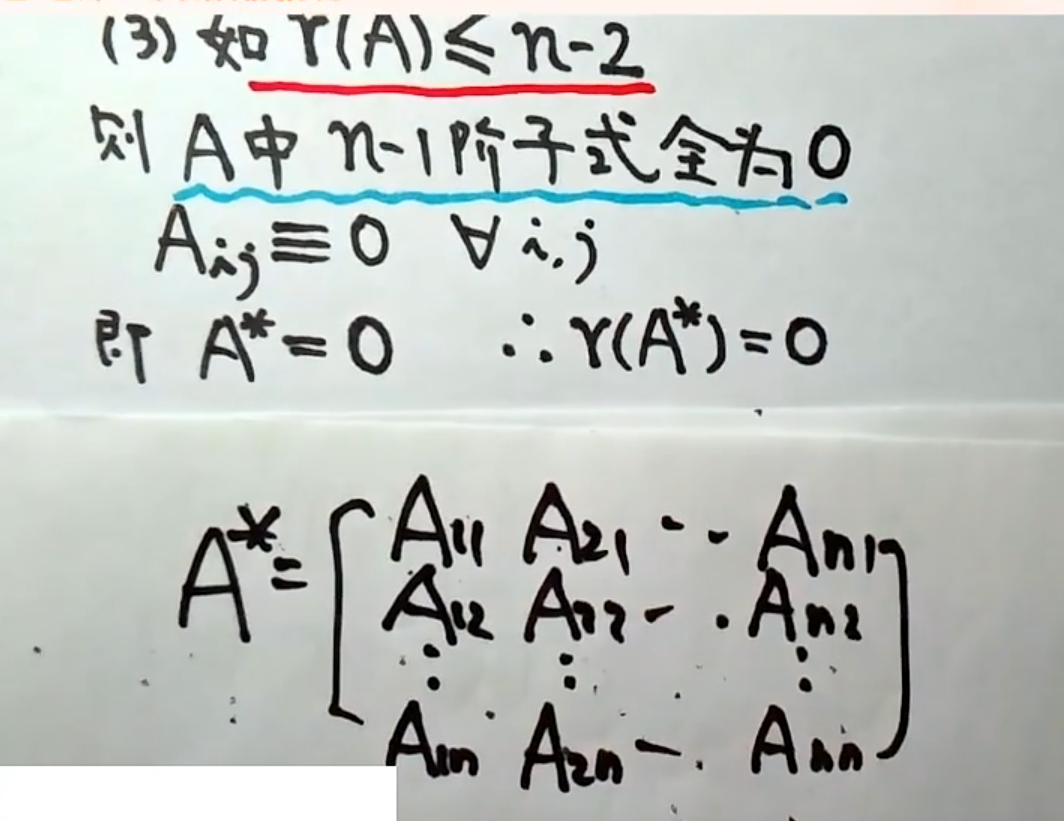 (3) 如 r(A)≤n-2
则 A中 n-1阶子式全为0
Aij≡0 ∀ i,j
即 A*=0 ∴r(A*)=0
A*= [ A11 A21 -- An1
A12 A22 - . An2
⋮ ⋮ ⋮
A1n A2n -. Ann ]